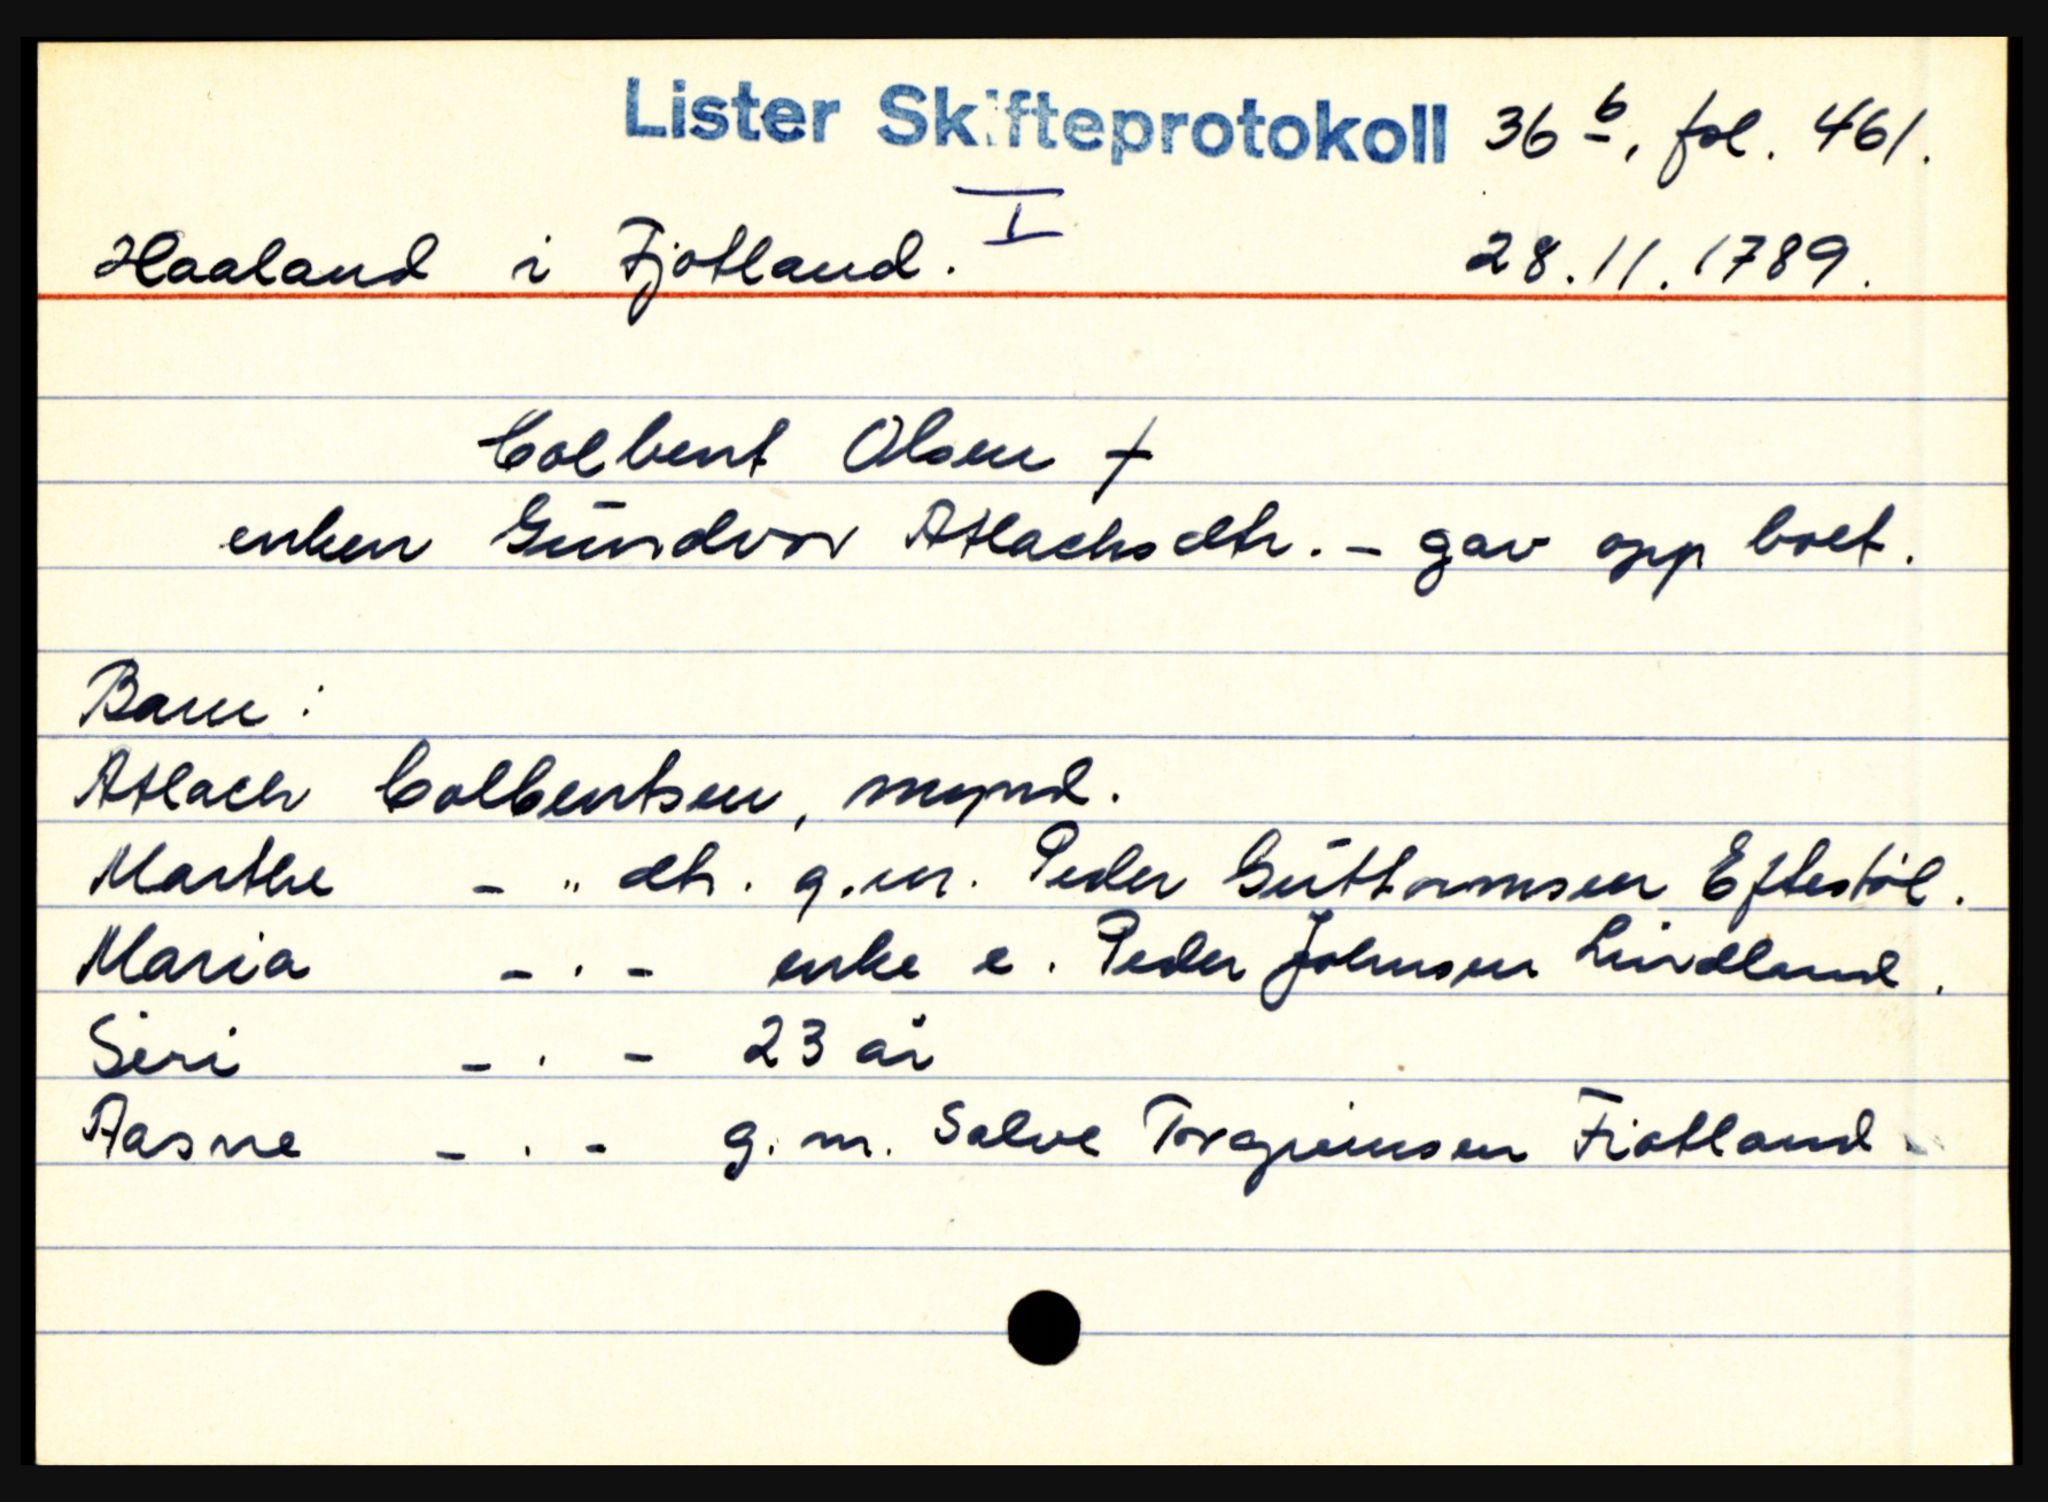 Lister Skifteprotokoll 36 b, fol. 461.
I
Haaland i Fjotland. 28.11.1789.
Colbent Olsen †
enken Gündvor Atlachsdtr. - gav opp boet.
Barn:
Atlach Colbentsen, mynd.
Marthe - " dtr. g.m. Peder Güttormsen Eftestöl.
Maria - . - enke e. Peder Johnsen Lindland.
Siri - . - 23 år
Aasne - . - g.m. Salve Torgrimsen Fiotland.